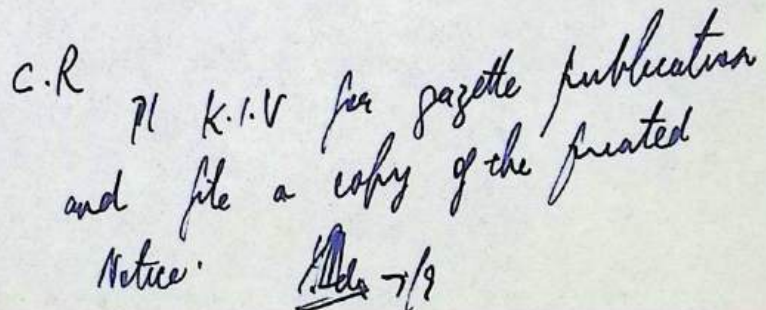 C.R
Pl K.I.V for gazette publication
and file a copy of the printed
Notice. 7/9